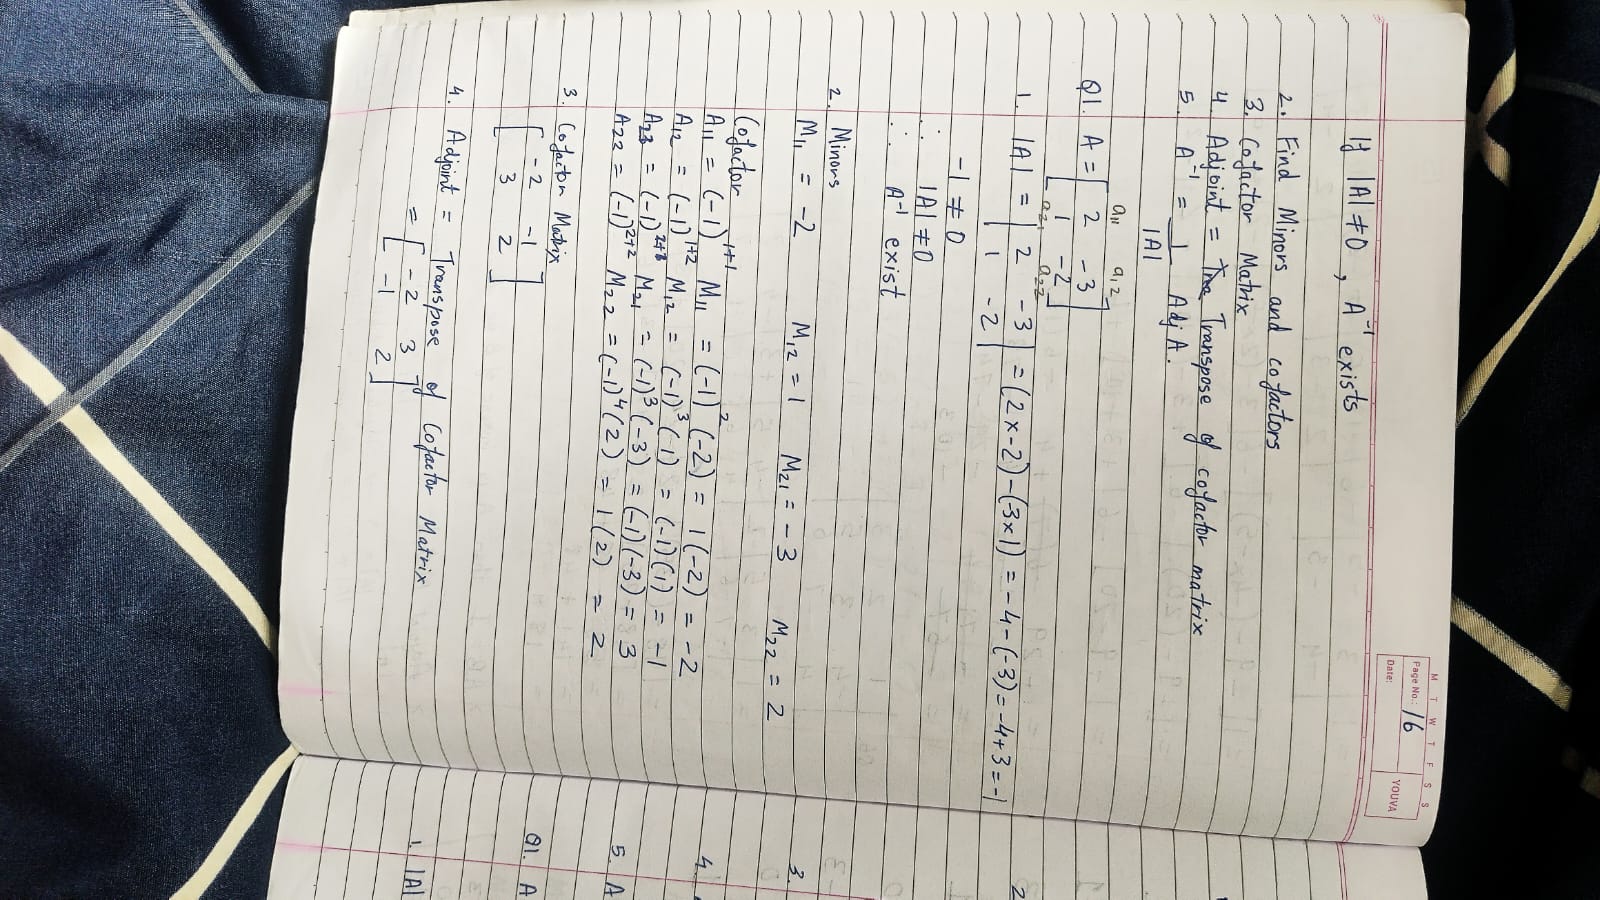 M T W T F S S
Page No.: 16
YOUVA
Date:
If |A| ≠ 0 , A⁻¹ exists
2. Find Minors and cofactors
3. Cofactor Matrix
4. Adjoint = Transpose of cofactor matrix
5. A⁻¹ = 1/|A| Adj A.
a₁₁ a₁₂
Q1. A = [ 2 -3
1 -2 ]
a₂₁ a₂₂
1. |A| = | 2 -3 | = (2×-2)-(-3×1) = -4-(-3) = -4+3 = -1
| 1 -2 |
-1 ≠ 0
∴ |A| ≠ 0
∴ A⁻¹ exist
2. Minors
M₁₁ = -2 M₁₂ = 1 M₂₁ = -3 M₂₂ = 2
Cofactor
A₁₁ = (-1)¹⁺¹ M₁₁ = (-1)² (-2) = 1(-2) = -2
A₁₂ = (-1)¹⁺² M₁₂ = (-1)³ (1) = (-1)(1) = -1
= (-1) M₂₁ = (-1)³ (-3) = (-1)(-3) = 3
A₂₂ = (-1)²⁺² M₂₂ = (-1)⁴ (2) = 1(2) = 2
3. Cofactor Matrix
[ -2 -1
3 2 ]
4. Adjoint = Transpose of Cofactor Matrix
= [ -2 3
-1 2 ]
2
3.
4.
5. A
Q1. A
1. |A|